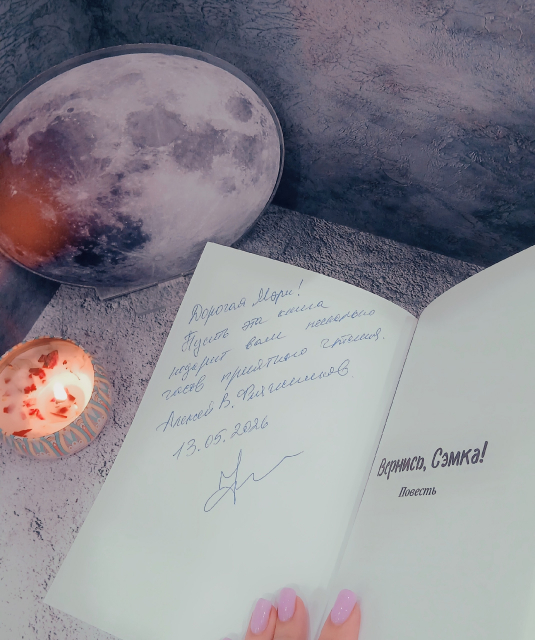 Дорогая Мэри!
Пусть эта книга
подарит вам несколько
часов приятного чтения.
Алексей В.
13.05.2026
Вернись, Сэмка!
Повесть